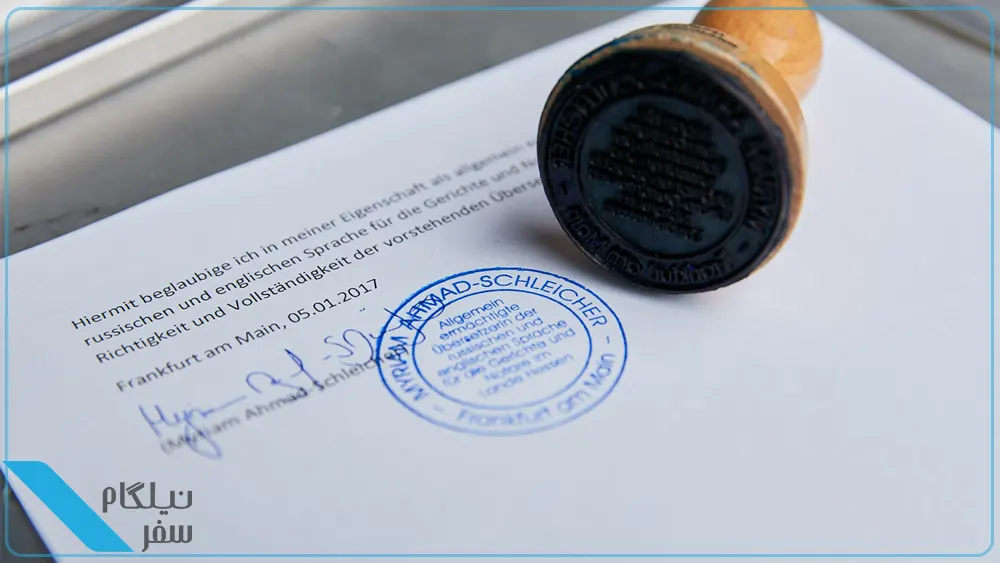 Hiermit beglaubige ich in meiner Eigenschaft als allgemein
russischen und englischen Sprache für die Gerichte und
Richtigkeit und Vollständigkeit der vorstehenden
Frankfurt am Main, 05.01.2017
(Myriam Ahmad-Schleicher
MYRIAM AHMAD-SCHLEICHER
Allgemein
ermächtigte
Übersetzerin der
russischen und
englischen Sprache
für die Gerichte und
Notare im
Lande Hessen
– Frankfurt am Main –
نیلگام
سفر